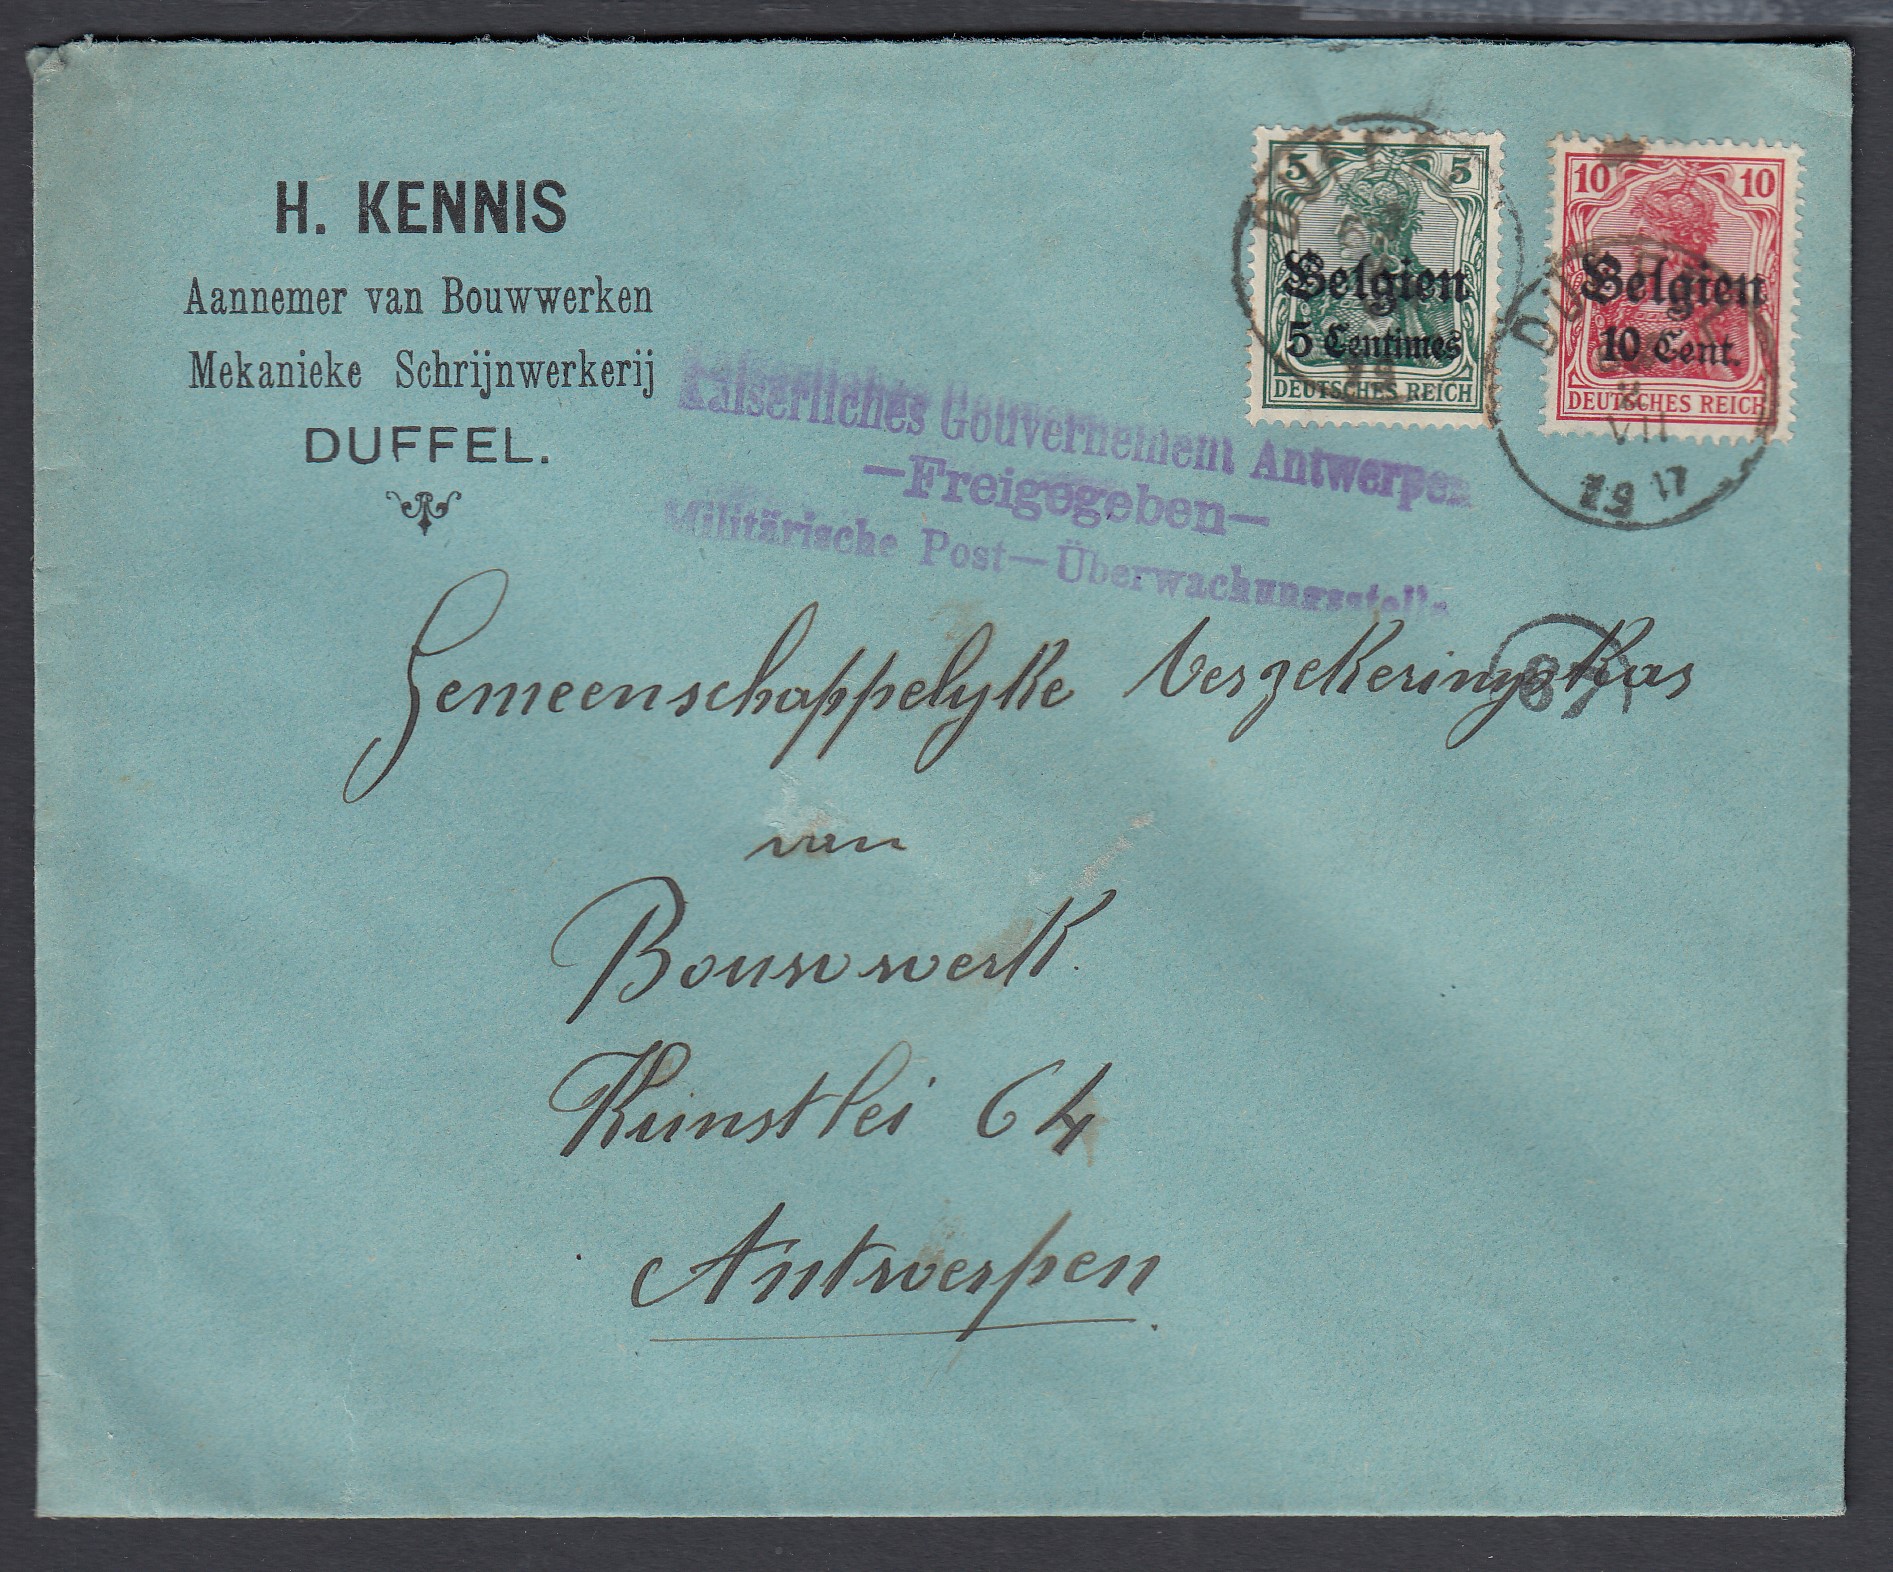 H. KENNIS
Aannemer van Bouwwerken
Mekanieke Schrijnwerkerij
DUFFEL.
5 5
Belgien
5 Centimes
DEUTSCHES REICH
10 10
Belgien
10 Cent.
DEUTSCHES REICH
DUFFEL
VII
19 17
Kaiserliches Gouvernement Antwerpen
—Freigegeben—
Militärische Post—Überwachungsstelle
Gemeenschappelyke Verzekeringskas
van
Bouwwerk.
Kunstlei 64
Antwerpen.